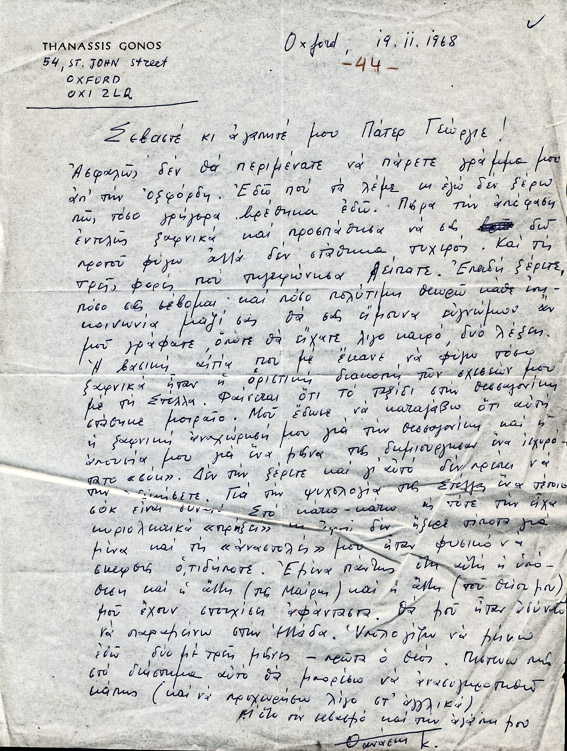 THANASSIS GONOS
54, ST. JOHN Street
OXFORD
OX1 2LR
Oxford, 19.11.1968
-44-
Σεβαστέ κι ἀγαπητέ μου Πάτερ Γεώργιε!
Ἀσφαλῶς δέν θά περιμένατε νά πάρετε γράμμα μου
ἀπ' τήν Ὀξφόρδη. Ἐδῶ πού τά λέμε κι ἐγώ δέν ξέρω
πῶς τόσο γρήγορα βρέθηκα ἐδῶ. Πῆρα τήν ἀπόφαση
ἐντελῶς ξαφνικά καί προσπάθησα νά σᾶς δῶ
προτοῦ φύγω ἀλλά δέν στάθηκα τυχερός. Καί τίς
τρεῖς φορές πού τηλεφώνησα λείπατε. Ἐπειδή ξέρετε,
πόσο σᾶς σέβομαι καί πόσο πολύτιμη θεωρῶ κάθε ἐπι-
κοινωνία μαζί σας θά σᾶς εἴμουνα εὐγνώμων ἄν
μοῦ γράφατε, ὁπότε θά εἴχατε λίγο καιρό, δυό λέξεις.
Ἡ βασική αἰτία πού μέ ἔκανε νά φύγω τόσο
ξαφνικά ἦταν ἡ ὁριστική διακοπή τῶν σχέσεών μου
μέ τή Στέλλα. Φαίνεται ὅτι τό ταξίδι στήν Θεσσαλονίκη
στάθηκε μοιραῖο. Μοῦ ἔδωσε νά καταλάβω ὅτι αὐτή
ἡ ξαφνική ἀναχώρησή μου γιά τήν Θεσσαλονίκη καί ἡ
ἀπουσία μου γιά ἕνα μῆνα τῆς δημιούργησαν ἕνα ἰσχυρό-
τατο «σόκ». Δέν τήν ξέρετε καί γι αὐτό δέν πρέπει νά
τήν . Γιά τήν ψυχολογία τῆς Στέλλας ἕνα τέτοιο
σόκ εἶναι . Στό κάτω-κάτω ὥς τότε τήν εἶχα
κυριολεκτικά « » κι δέν ἤξερε τίποτα γιά
μένα καί τίς «ἀναστολές» μου ἦταν φυσικό νά
σκεφθῇ ὁτιδήποτε. Ἐμένα πάντως αὐτή ἡ ὑπό-
θεση καί ἡ ἄλλη (τῆς Μαίρης) καί ἡ ἄλλη (τοῦ θείου μου)
μοῦ ἔχουν στοιχίσει ἀφάνταστα. Θά μοῦ ἦταν ἀδύνατο
νά παραμείνω στήν Ἑλλάδα. Ὑπολογίζω νά μείνω
ἐδῶ δυό μέ τρεῖς μῆνες – πρῶτα ὁ Θεός. Πιστεύω πώς
στό διάστημα αὐτό θά μπορέσω νά ἀνασυγκροτηθῶ
κάπως (καί νά προχωρήσω λίγο στ' ἀγγλικά)
Μ' ὅλο τόν σεβασμό καί τήν ἀγάπη μου
Θανάσης Κ.